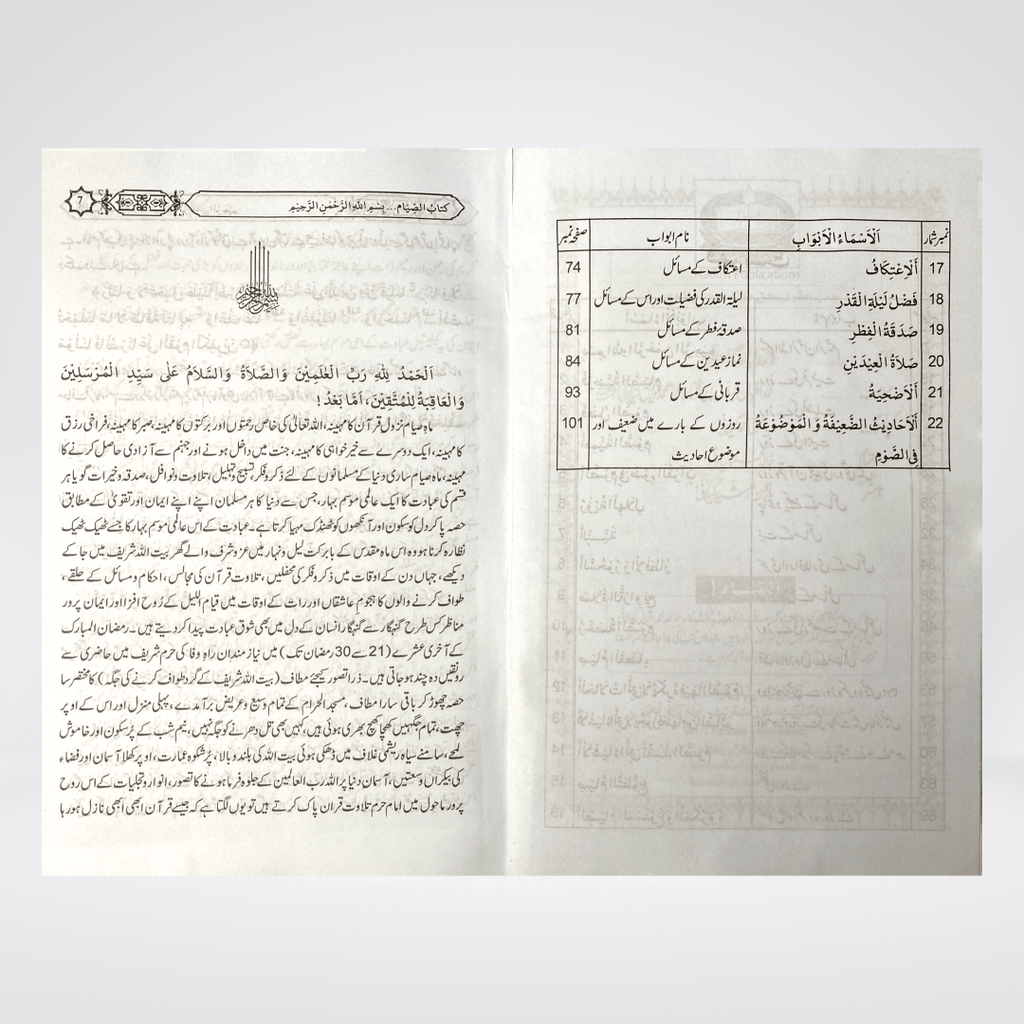 نمبر شمار اَلْاَسْمَاءُ الْاَبْوَابِ نام ابواب صفحہ نمبر
17 اَلْاِعْتِكَافُ اعتکاف کے مسائل 74
18 فَضْلُ لَيْلَةِ الْقَدْرِ لیلۃ القدر کی فضیلت اور اس کے مسائل 77
19 صَدَقَةُ الْفِطْرِ صدقہ فطر کے مسائل 81
20 صَلَاةُ الْعِيْدَيْنِ نماز عیدین کے مسائل 84
21 اَلْاُضْحِيَةُ قربانی کے مسائل 93
22 اَلْاَحَادِيْثُ الضَّعِيْفَةُ وَ الْمَوْضُوْعَةُ روزوں کے بارے میں ضعیف اور 101
فِي الصَّوْمِ موضوع احادیث
کتابُ الصِّیَام... بِسْمِ اللّٰهِ الرَّحْمٰنِ الرَّحِيْمِ 7
بسم الله الرحمن الرحيم
اَلْحَمْدُ لِلّٰهِ رَبِّ الْعٰلَمِيْنَ وَالصَّلَاةُ وَالسَّلَامُ عَلٰى سَيِّدِ الْمُرْسَلِيْنَ
وَالْعَاقِبَةُ لِلْمُتَّقِيْنَ، اَمَّا بَعْدُ!
ماہ صیام نزول قرآن کا مہینہ، اللہ تعالیٰ کی خاص رحمتوں اور برکتوں کا مہینہ، صبر کا مہینہ، فراخی رزق
کا مہینہ، ایک دوسرے سے خیر خواہی کا مہینہ، جنت میں داخل ہونے اور جہنم سے آزادی حاصل کرنے کا
مہینہ، ماہ صیام ساری دنیا کے مسلمانوں کے لئے ذکر و فکر، تسبیح و تہلیل، تلاوت و نوافل، صدقہ و خیرات گویا ہر
قسم کی عبادت کا ایک عالمی موسم بہار، جس سے دنیا کا ہر مسلمان اپنے اپنے ایمان اور تقویٰ کے مطابق
حصہ پا کر دل کو سکون اور آنکھوں کو ٹھنڈک مہیا کرتا ہے۔ عبادت کے اس عالمی موسم بہار کا جسے ٹھیک ٹھیک
نظارہ کرنا ہو وہ اس ماہ مقدس کے بابرکت لیل و نہار میں عز و شرف والے گھر بیت اللہ شریف میں جا کے
دیکھے، جہاں دن کے اوقات میں ذکر و فکر کی محفلیں، تلاوت قرآن کی مجالس، احکام و مسائل کے حلقے،
طواف کرنے والوں کا ہجوم عاشقاں اور رات کے اوقات میں قیام اللیل کے رُوح افزا اور ایمان پرور
مناظر کس طرح گنہگار سے گنہگار انسان کے دل میں بھی شوق عبادت پیدا کر دیتے ہیں۔ رمضان المبارک
کے آخری عشرے (21 سے 30 رمضان تک) میں نیاز مندان راہِ وفا کی حرم شریف میں حاضری سے
رونقیں دہ چند ہو جاتی ہیں۔ ذرا تصور کیجئے مطاف (بیت اللہ شریف کے گرد طواف کرنے کی جگہ) کا مختصر سا
حصہ چھوڑ کر باقی سارا مطاف، مسجد الحرام کے تمام وسیع و عریض برآمدے، پہلی منزل اور اس کے اوپر
چھت، تمام جگہیں کھچا کھچ بھری ہوئی ہیں، کہیں بھی تل دھرنے کو جگہ نہیں، نیم شب کے پر سکون اور خاموش
لمحے، سامنے سیاہ ریشمی غلاف میں ڈھکی ہوئی بیت اللہ کی بلند و بالا، پر شکوہ عمارت، اوپر کھلا آسمان اور فضاء
کی بیکراں وسعتیں، آسمان دنیا پر اللہ رب العالمین کے جلوہ فرما ہونے کا تصور، انوار و تجلیات کے اس روح
پرور ماحول میں امام حرم تلاوت قران پاک کرتے ہیں تو یوں لگتا ہے کہ جیسے قرآن ابھی ابھی نازل ہو رہا